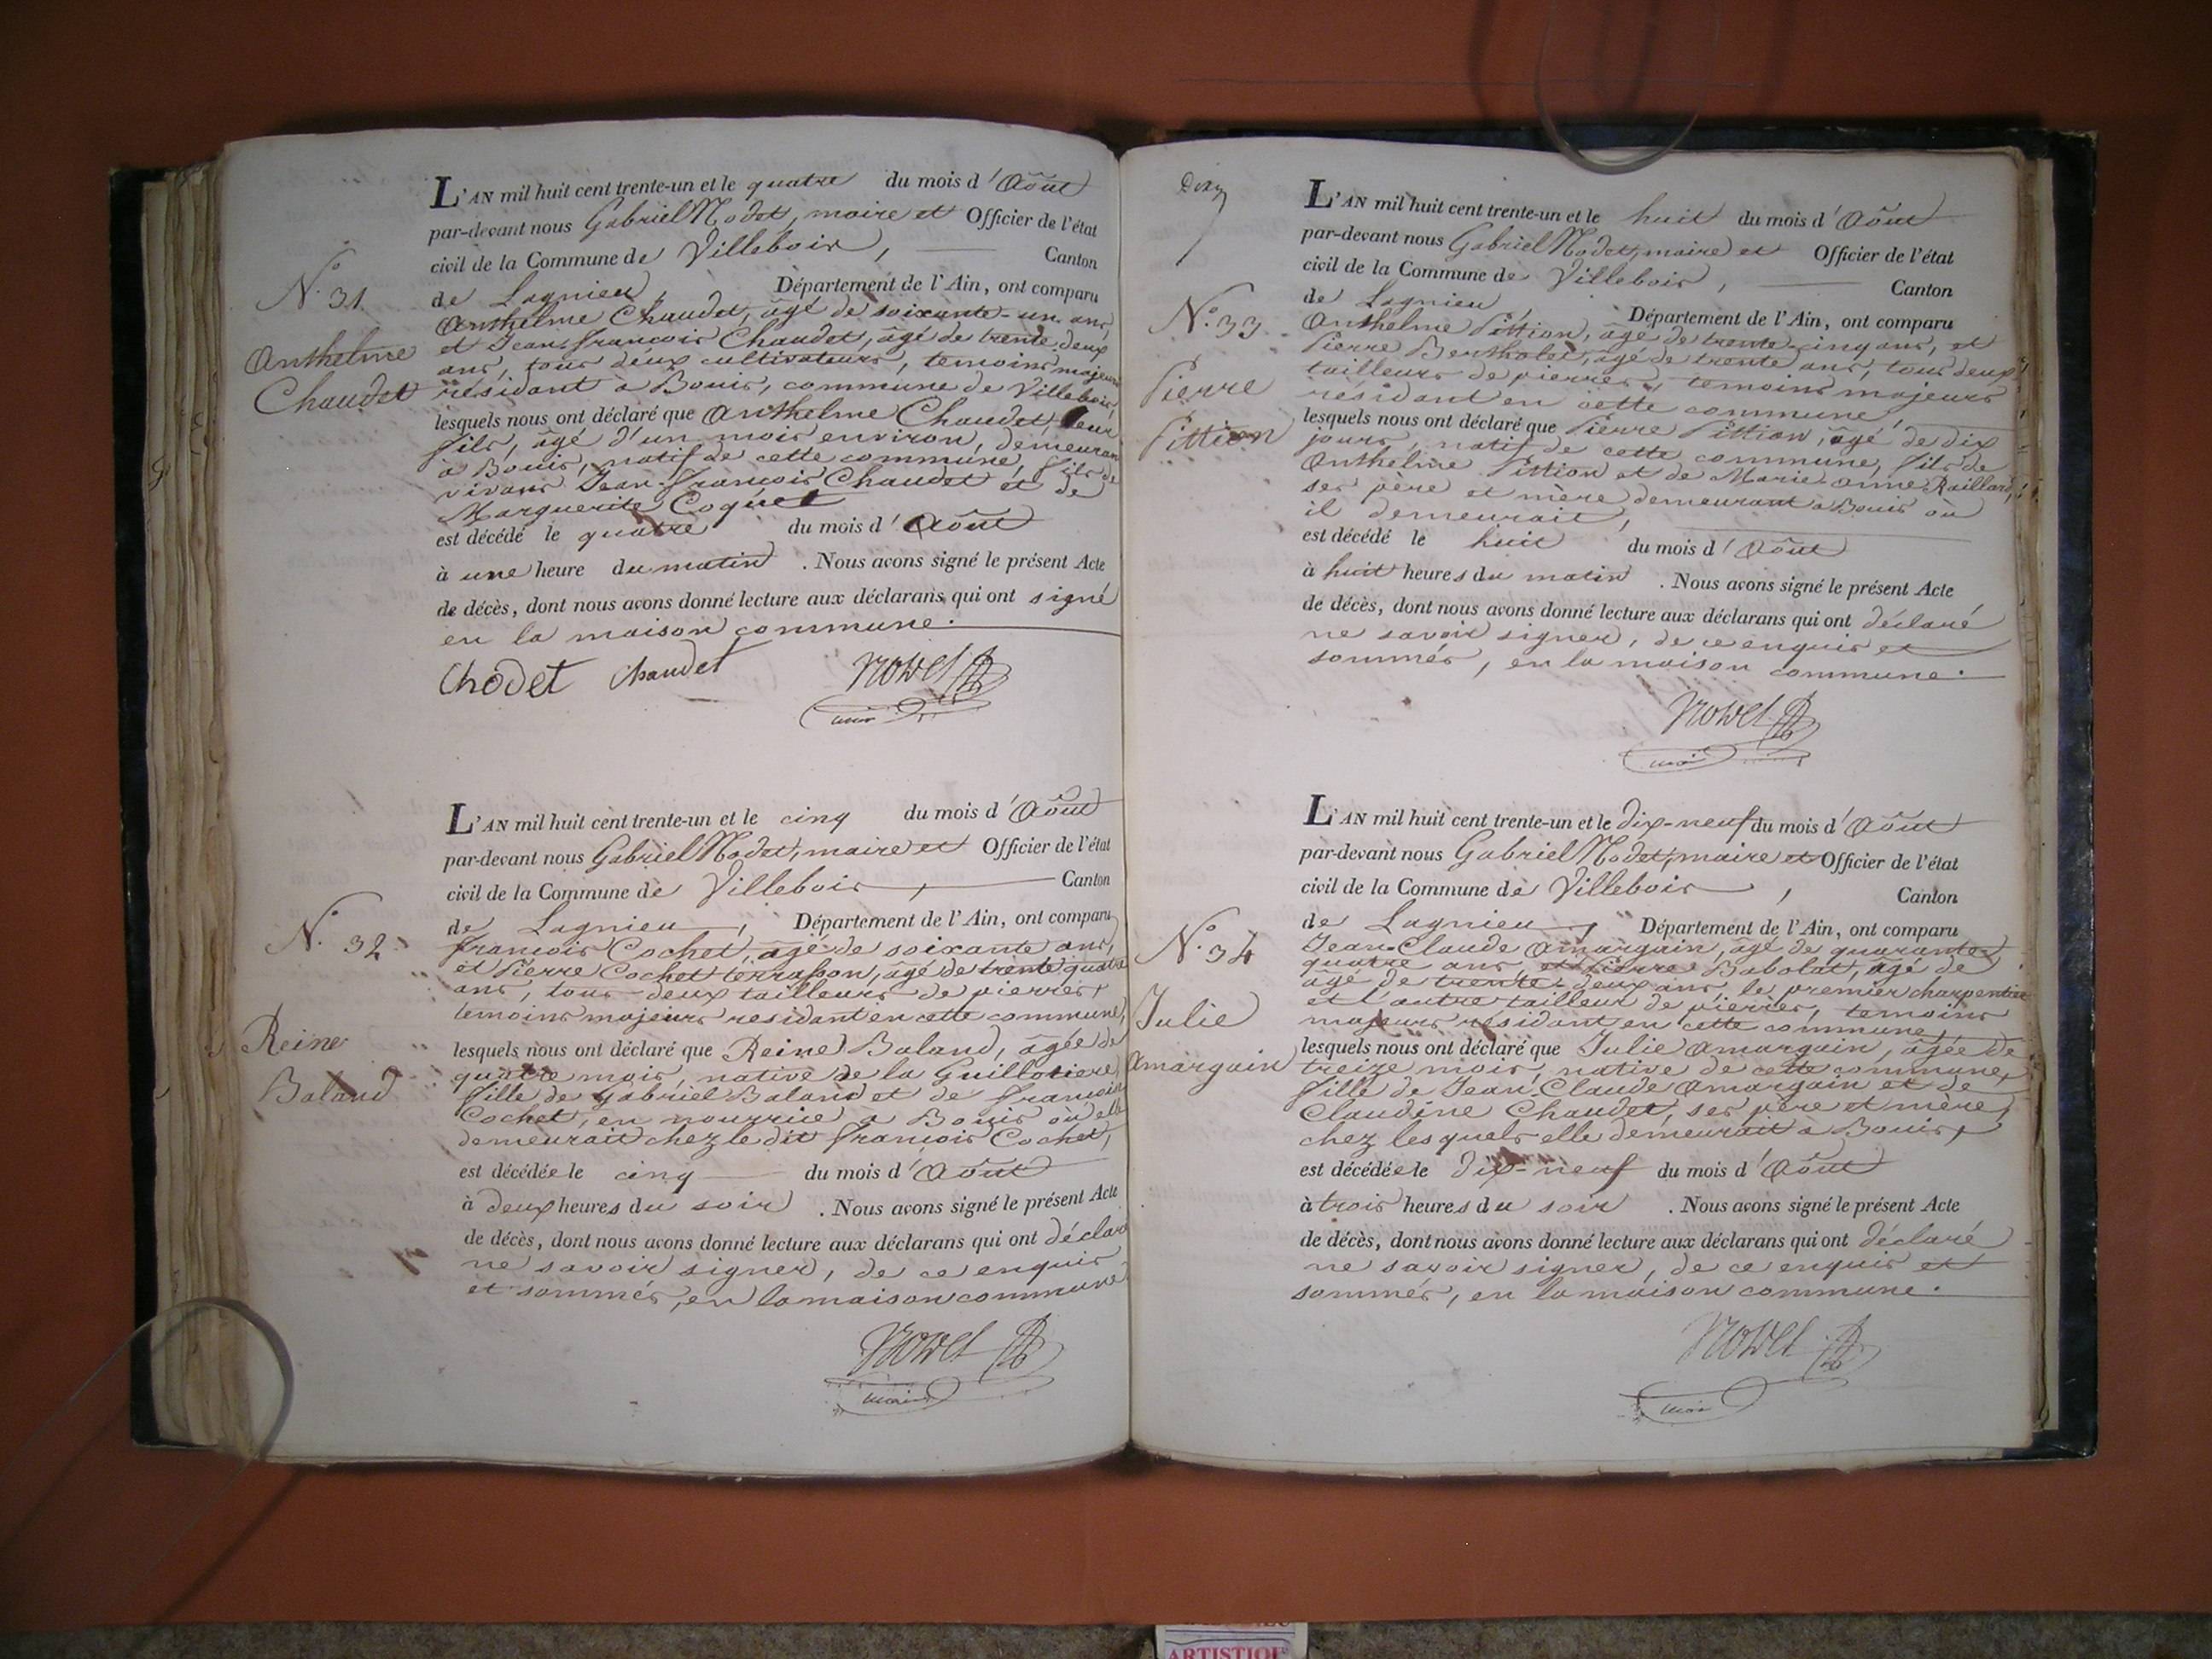 L'AN mil huit cent trente-un et le quatre du mois d'Août
par-devant nous Gabriel Nodet, maire et Officier de l'état
civil de la Commune de Villebois, Canton
de Lagnieu, Département de l'Ain, ont comparu
N.° 31.
Anthelme
Chaudet
Anthelme Chaudet, âgé de soixante-un ans,
et Jean-françois Chaudet, âgé de trente-deux
ans, tous deux cultivateurs, temoins majeurs
résidant à Bouis, commune de Villebois,
lesquels nous ont déclaré que Anthelme Chaudet, leur
fils, âgé d'un mois environ, demeurant
à Bouis, natif de cette commune, fils de
vivans Jean-françois Chaudet et de
Marguerite Coquet
est décédé le quatre du mois d'Août
à une heure du matin. Nous avons signé le présent Acte
de décès, dont nous avons donné lecture aux déclarans qui ont signé
en la maison commune.
Chodet Chaudet Nodet
maire
L'AN mil huit cent trente-un et le cinq du mois d'Août
par-devant nous Gabriel Nodet, maire et Officier de l'état
civil de la Commune de Villebois, Canton
de Lagnieu, Département de l'Ain, ont comparu
N.° 32.
Reine
Baland
françois Cochet, agé de soixante ans,
et Pierre Cochet terrasson, âgé de trente quatre
ans, tous deux tailleurs de pierres,
temoins majeurs residant en cette commune,
lesquels nous ont déclaré que Reine Baland, âgée de
quatre mois, native de la Guillotiere,
fille de Gabriel Baland et de françoise
Cochet, en nourrice a Bouis où elle
demeurait chez le dit françois Cochet,
est décédée le cinq du mois d'Août
à deux heures du soir. Nous avons signé le présent Acte
de décès, dont nous avons donné lecture aux déclarans qui ont déclaré
ne savoir signer, de ce enquis
et sommés, en la maison commune
Nodet
maire
L'AN mil huit cent trente-un et le huit du mois d'Août
par-devant nous Gabriel Nodet, maire et Officier de l'état
civil de la Commune de Villebois, Canton
de Lagnieu, Département de l'Ain, ont comparu
N.° 33.
Pierre
Pittion
Anthelme Pittion, âgé de trente-cinq ans, et
Pierre Bertholet, âgé de trente ans, tous deux
tailleurs de pierres, temoins majeurs
résidant en cette commune,
lesquels nous ont déclaré que Pierre Pittion, âgé de dix
jours, natif de cette commune, fils de
Anthelme Pittion et de Marie-anne Raillard,
ses père et mère demeurant a Bouis où
il demeurait,
est décédé le huit du mois d'Août
à huit heures du matin. Nous avons signé le présent Acte
de décès, dont nous avons donné lecture aux déclarans qui ont déclaré
ne savoir signer, de ce enquis et
sommés, en la maison commune.
Nodet
maire
L'AN mil huit cent trente-un et le dix-neuf du mois d'Août
par-devant nous Gabriel Nodet, maire et Officier de l'état
civil de la Commune de Villebois, Canton
de Lagnieu, Département de l'Ain, ont comparu
N.° 34
Julie
Amargain
Jean-Claude Amargain, âgé de quarante
quatre ans et Pierre Babolat, âgé de
âgé de trente-deux ans, le premier charpentier
et l'autre tailleur de pierres, temoins
majeurs résidant en cette commune,
lesquels nous ont déclaré que Julie Amargain, âgée de
treize mois, native de cette commune,
fille de Jean-Claude Amargain et de
Claudine Chaudet, ses père et mère,
chez lesquels elle demeurait a Bouis,
est décédée le dix-neuf du mois d'Août
à trois heures du soir. Nous avons signé le présent Acte
de décès, dont nous avons donné lecture aux déclarans qui ont déclaré
ne savoir signer, de ce enquis et
sommés, en la maison commune.
Nodet
maire